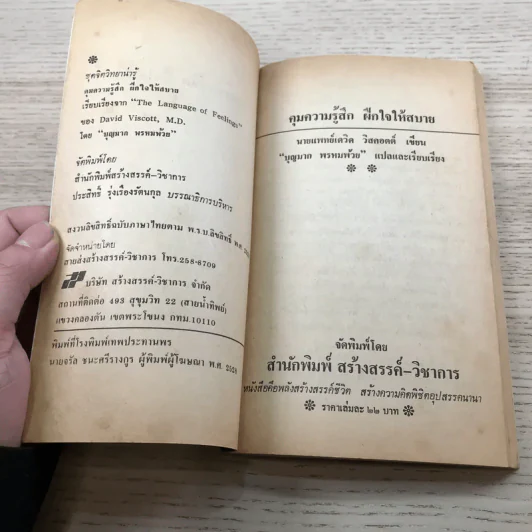 ชุดจิตวิทยาน่ารู้
คุมความรู้สึก ฝึกใจให้สบาย
เรียบเรียงจาก "The Language of Feelings"
ของ David Viscott, M.D.
โดย "บุญมาก พรหมพ้วย"
จัดพิมพ์โดย
สำนักพิมพ์สร้างสรรค์-วิชาการ
ประสิทธิ์ รุ่งเรืองรัตนกุล บรรณาธิการบริหาร
สงวนลิขสิทธิ์ฉบับภาษาไทยตาม พ.ร.บ.ลิขสิทธิ์ พ.ศ.
จัดจำหน่ายโดย
สายส่งสร้างสรรค์-วิชาการ โทร.258-8709
บริษัท สร้างสรรค์-วิชาการ จำกัด
สถานที่ติดต่อ 493 สุขุมวิท 22 (สายน้ำทิพย์)
แขวงคลองตัน เขตพระโขนง กทม.10110
พิมพ์ที่โรงพิมพ์เทพประทานพร
นายจรัล ชนะศรีรางกูร ผู้พิมพ์ผู้โฆษณา พ.ศ.
คุมความรู้สึก ฝึกใจให้สบาย
นายแพทย์เดวิด วิสคอตต์ เขียน
"บุญมาก พรหมพ้วย" แปลและเรียบเรียง
จัดพิมพ์โดย
สำนักพิมพ์ สร้างสรรค์-วิชาการ
หนังสือคือพลังสร้างสรรค์ชีวิต สร้างความคิดพิชิตอุปสรรคนานา
ราคาเล่มละ ๒๒ บาท